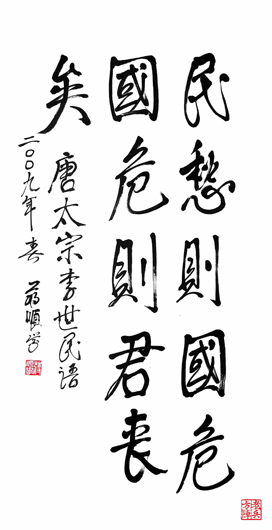 民愁則國危
國危則君喪
矣
唐太宗李世民語
二〇〇九年春